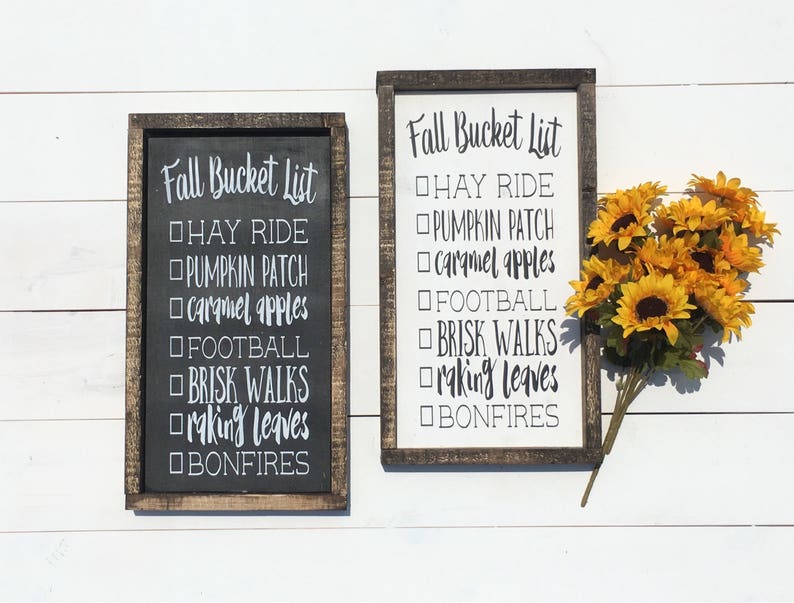 Fall Bucket List
☐ HAY RIDE
☐ PUMPKIN PATCH
☐ caramel apples
☐ FOOTBALL
☐ BRISK WALKS
☐ raking leaves
☐ BONFIRES
Fall Bucket List
☐ HAY RIDE
☐ PUMPKIN PATCH
☐ caramel apples
☐ FOOTBALL
☐ BRISK WALKS
☐ raking leaves
☐ BONFIRES